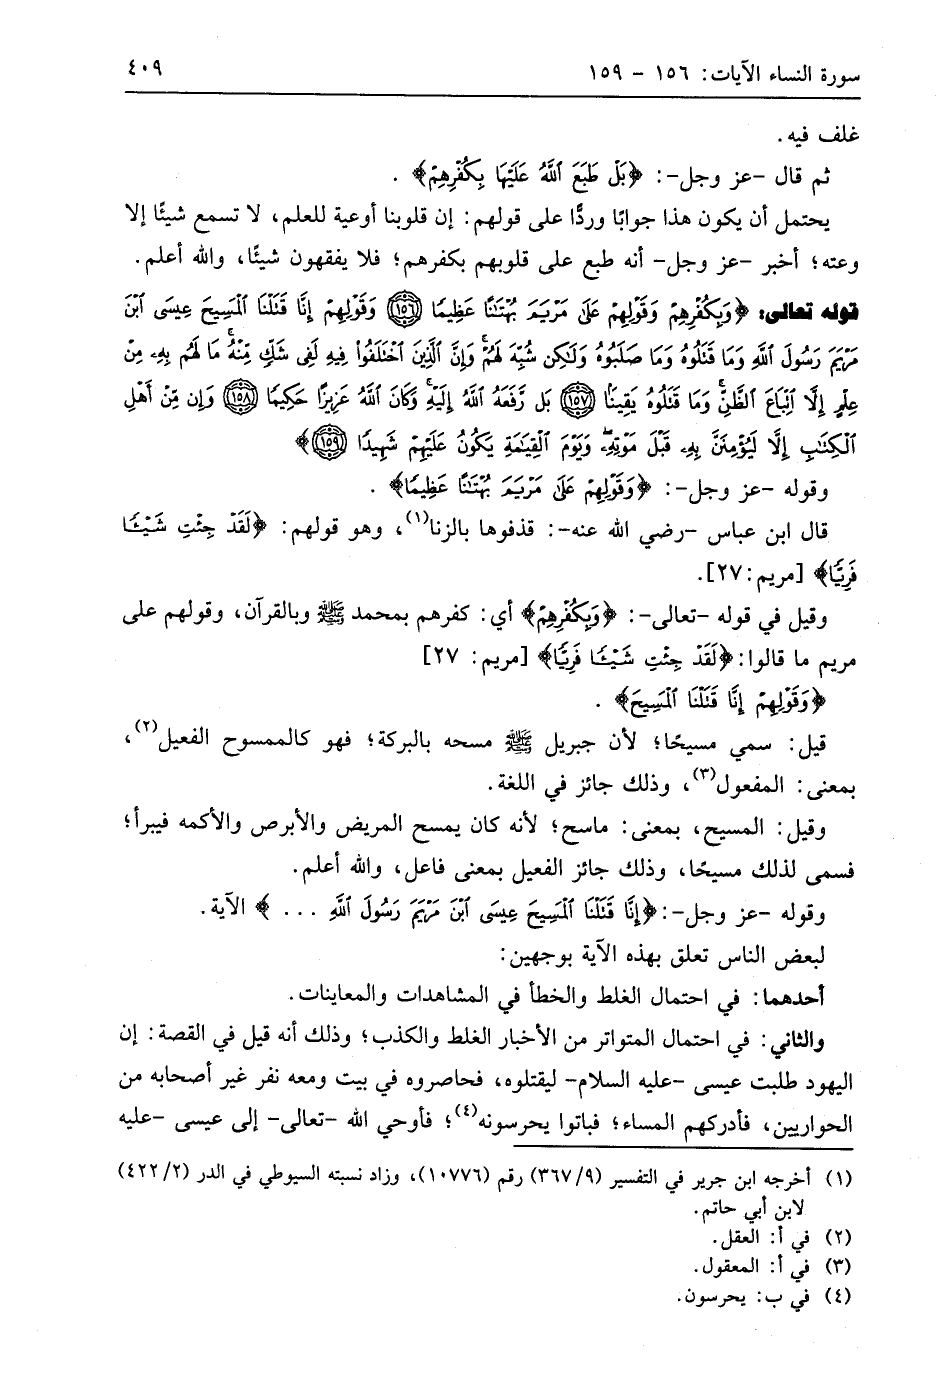 سورة النساء الآيات: ١٥٦ - ١٥٩
٤٠٩
غلف فيه.
ثم قال -عز وجل-: ﴿بَلْ طَبَعَ ٱللَّهُ عَلَيْهَا بِكُفْرِهِمْ﴾ .
يحتمل أن يكون هذا جوابًا وردًّا على قولهم: إن قلوبنا أوعية للعلم، لا تسمع شيئًا إلا
وعته؛ أخبر -عز وجل- أنه طبع على قلوبهم بكفرهم؛ فلا يفقهون شيئًا، والله أعلم.
قوله تعالى: ﴿وَبِكُفْرِهِمْ وَقَوْلِهِمْ عَلَىٰ مَرْيَمَ بُهْتَٰنًا عَظِيمًا ١٥٦ وَقَوْلِهِمْ إِنَّا قَتَلْنَا ٱلْمَسِيحَ عِيسَى ٱبْنَ
مَرْيَمَ رَسُولَ ٱللَّهِ وَمَا قَتَلُوهُ وَمَا صَلَبُوهُ وَلَٰكِن شُبِّهَ لَهُمْ ۚ وَإِنَّ ٱلَّذِينَ ٱخْتَلَفُوا۟ فِيهِ لَفِى شَكٍّ مِّنْهُ ۚ مَا لَهُم بِهِۦ مِنْ
عِلْمٍ إِلَّا ٱتِّبَاعَ ٱلظَّنِّ ۚ وَمَا قَتَلُوهُ يَقِينًۢا ١٥٧ بَل رَّفَعَهُ ٱللَّهُ إِلَيْهِ ۚ وَكَانَ ٱللَّهُ عَزِيزًا حَكِيمًا ١٥٨ وَإِن مِّنْ أَهْلِ
ٱلْكِتَٰبِ إِلَّا لَيُؤْمِنَنَّ بِهِۦ قَبْلَ مَوْتِهِۦ ۖ وَيَوْمَ ٱلْقِيَٰمَةِ يَكُونُ عَلَيْهِمْ شَهِيدًا ١٥٩﴾
وقوله -عز وجل-: ﴿وَقَوْلِهِمْ عَلَىٰ مَرْيَمَ بُهْتَٰنًا عَظِيمًا﴾ .
قال ابن عباس -رضي الله عنه-: قذفوها بالزنا(١)، وهو قولهم: ﴿لَقَدْ جِئْتِ شَيْـًٔا
فَرِيًّا﴾ [مريم:٢٧].
وقيل في قوله -تعالى-: ﴿وَبِكُفْرِهِمْ﴾ أي: كفرهم بمحمد ﷺ وبالقرآن، وقولهم على
مريم ما قالوا: ﴿لَقَدْ جِئْتِ شَيْـًٔا فَرِيًّا﴾ [مريم: ٢٧]
﴿وَقَوْلِهِمْ إِنَّا قَتَلْنَا ٱلْمَسِيحَ﴾ .
قيل: سمي مسيحًا؛ لأن جبريل ﷺ مسحه بالبركة؛ فهو كالممسوح الفعيل(٢)،
بمعنى: المفعول(٣)، وذلك جائز في اللغة.
وقيل: المسيح، بمعنى: ماسح؛ لأنه كان يمسح المريض والأبرص والأكمه فيبرأ؛
فسمى لذلك مسيحًا، وذلك جائز الفعيل بمعنى فاعل، والله أعلم.
وقوله -عز وجل-: ﴿إِنَّا قَتَلْنَا ٱلْمَسِيحَ عِيسَى ٱبْنَ مَرْيَمَ رَسُولَ ٱللَّهِ ... ﴾ الآية.
لبعض الناس تعلق بهذه الآية بوجهين:
أحدهما: في احتمال الغلط والخطأ في المشاهدات والمعاينات.
والثاني: في احتمال المتواتر من الأخبار الغلط والكذب؛ وذلك أنه قيل في القصة: إن
اليهود طلبت عيسى -عليه السلام- ليقتلوه، فحاصروه في بيت ومعه نفر غير أصحابه من
الحواريين، فأدركهم المساء؛ فباتوا يحرسونه(٤)؛ فأوحي الله -تعالى- إلى عيسى -عليه
(١) أخرجه ابن جرير في التفسير (٣٦٧/٩) رقم (١٠٧٧٦)، وزاد نسبته السيوطي في الدر (٤٢٢/٢)
لابن أبي حاتم.
(٢) في أ: العقل.
(٣) في أ: المعقول.
(٤) في ب: يحرسون.